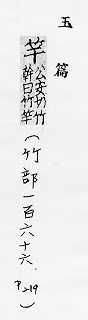 玉篇
竿
公安切竹
幹曰竹竿
（竹部一百六十六、P.219）